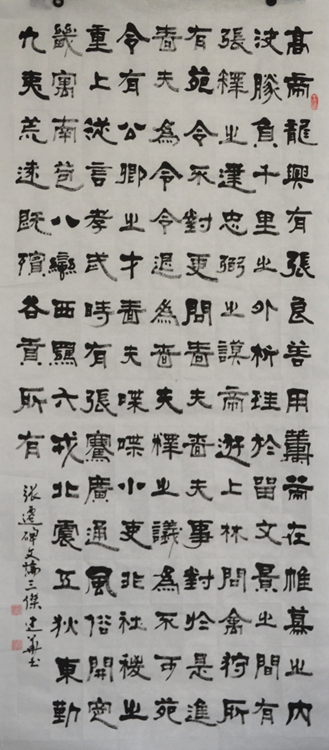 高帝龍興有張良善用籌策在帷幕之內
決勝負千里之外析珪於留文景之間有
張釋之建忠弼之謨帝遊上林問禽狩所
有苑令不對更問嗇夫嗇夫事對於是進
嗇夫為令令退為嗇夫釋之議為不可苑
令有公卿之才嗇夫喋喋小吏非社稷之
重上從言孝武時有張騫廣通風俗開定
畿寓南苞八蠻西羈六戎北震五狄東勤
九夷荒遠既殯各貢所有
張遷碑文三傑建華书